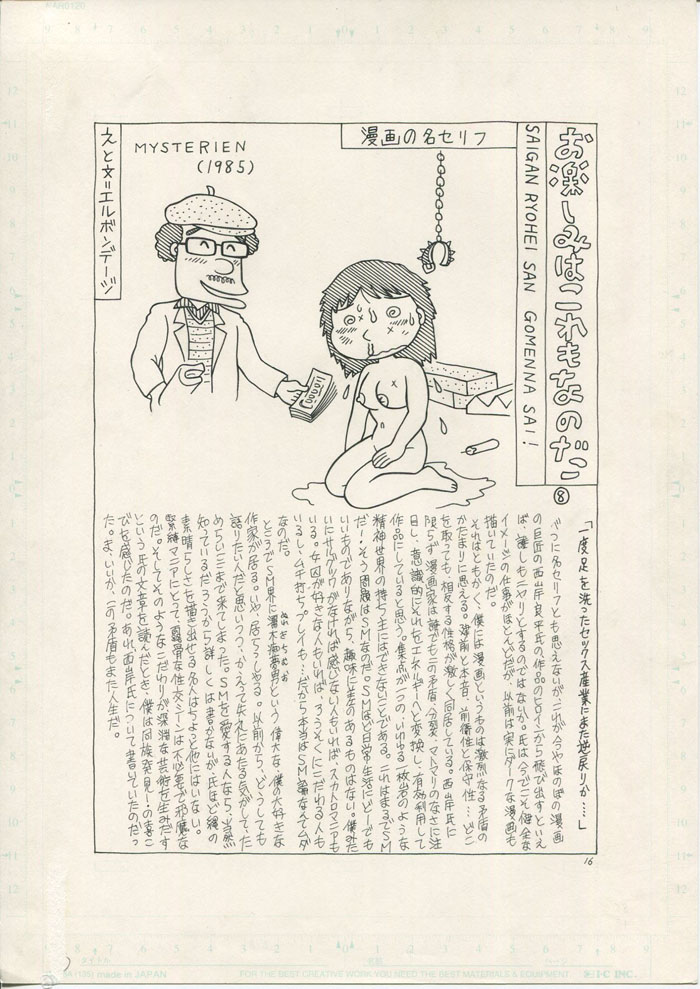 お楽しみはこれもなのだ
⑧
SAIGAN RYOHEI SAN GOMENNA SAI!
漫画の名セリフ
MYSTERIEN
(1985)
えと文=エルボンデージ
「一度足を洗ったセックス産業にまた逆戻りか……」
べつに名セリフとも思えないが、これが今やほのぼの漫画
の巨匠の西岸良平氏の作品のヒロインから飛び出すといえ
ば、誰しもニヤリとするのではないか。氏は今でこそ健全な
イメージの仕事がほとんどだが、以前は実にダークな漫画も
描いていたのだ。
それはともかく、僕には漫画というものは激烈なる矛盾の
かたまりに思える。建前と本音、前衛性と保守性…どこ
を取っても、相反する性格が激しく同居している。西岸氏に
限らず漫画家は誰でもこの矛盾、分裂、マトマリのなさに注
目し、意識的にそれをエネルギーへと変換し、有効利用して
作品にしていると思う。焦点が二つの、いわゆる一枚岩のような
精神世界の持ち主にはできないことである。これはまるでSM
だ!そう、問題はSMなのだ。SMほど日常生活にどーでも
いいものでありながら、趣味に差のあるものはない。僕みた
いにサルグツワがなければ感じない人もいれば、スカトロマニアも
いる。女囚が好きな人もいれば、ろうそくにこだわる人も
いるし、ムチ打ちプレイも…だから本当はSM論なんてムダ
なのだ。
ところでSM界に濡木痴夢男という偉大な、僕の大好きな
作家が居る。いや、居らっしゃる。以前から、どうしても
語りたい人だと思いつつ、かえって失礼にあたる気がして、た
めらいここまで来てしまった。SMを愛する人なら、当然
知っているだろうから詳しくは書かないが、氏ほど縄の
素晴らしさを描き出せる名人はちょっと他にはいない。
緊縛マニアにとって、露骨な性交シーンは不必要で邪魔な
のだ。そしてそのようなこだわりが深淵な芸術を生みだす
という氏の文章を読んだとき、僕は同族発見!の喜こ
びを感じたのだ。あれ、西岸氏について書いていたのだっ
た。ま、いいか、この矛盾もまた人生だ。
16
made in JAPAN
FOR THE BEST CREATIVE WORK YOU NEED THE BEST MATERIALS & EQUIPMENT
I·C INC.